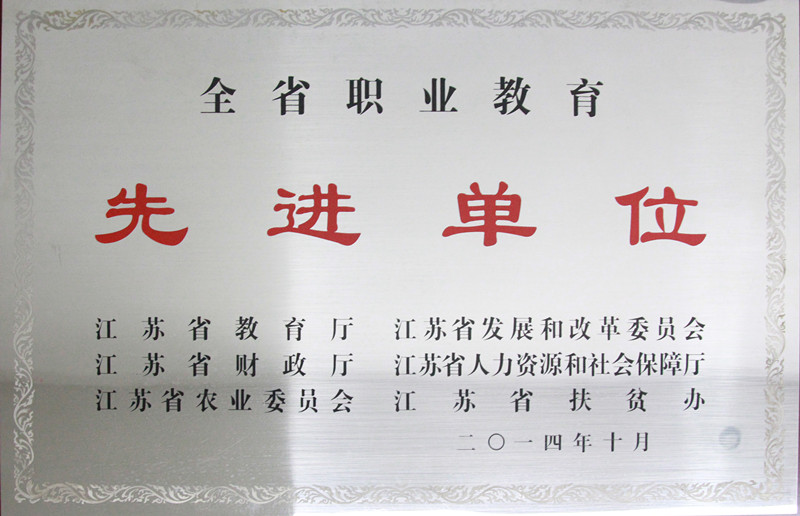 全省职业教育
先进单位
江苏省教育厅 江苏省发展和改革委员会
江苏省财政厅 江苏省人力资源和社会保障厅
江苏省农业委员会 江苏省扶贫办
二〇一四年十月